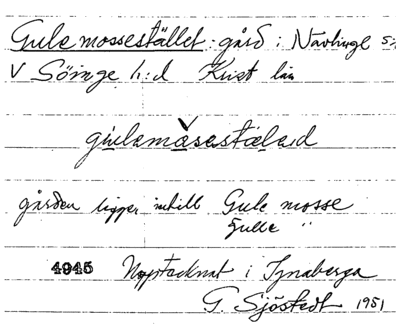 Gule mossestället gård i Navlinge sn
V Göinge h:d Krist län
gårđen ligger intill Gule mosse
Gulle "
4945 Upptecknat i Ignaberga
G. Sjöstedt 1951